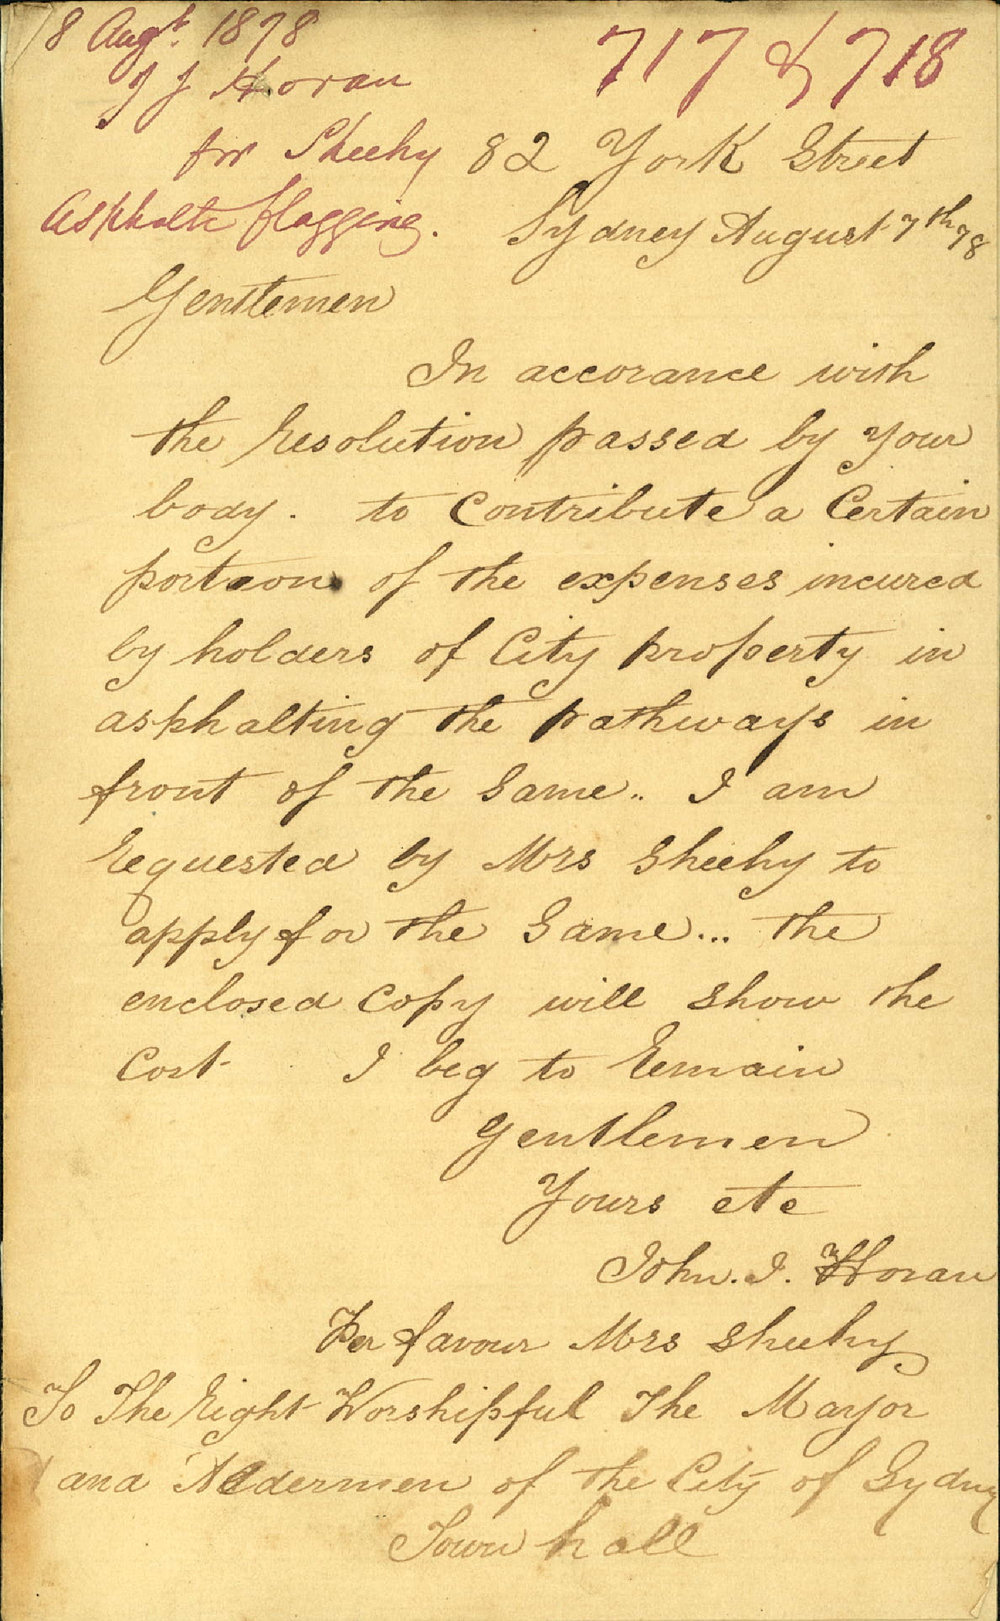 8 Augt. 1878
J J Horan
for Sheehy
Asphalte flagging.
717 & 718
82 York Street
Sydney August 7th 78
Gentlemen
In accorance with
the resolution passed by your
body. to Contribute a Certain
portion of the expenses incured
by holders of City property in
asphalting the pathways in
front of the same.. I am
requested by Mrs Sheehy to
apply for the Same... the
enclosed Copy will show the
Cost I beg to remain
Gentlemen
Yours etc
John. J. Horan
Per favour Mrs Sheehy
To The Right Worshipful The Mayor
and Aldermen of the City of Sydney
Town hall